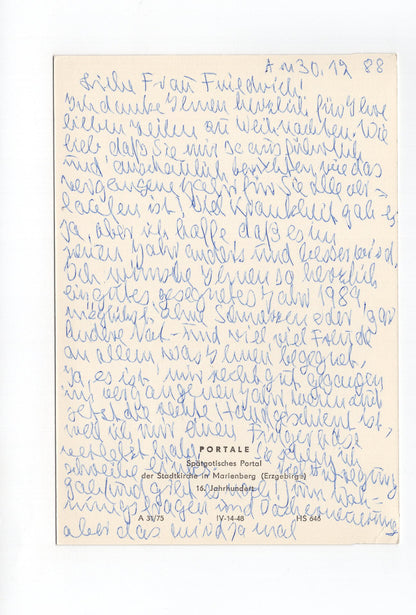 A 30.12 88
Liebe Frau Friedrich!
Ich danke Ihnen herzlich für Ihre
lieben Zeilen zu Weihnachten. Wie
lieb daß Sie mir so ausführlich
und anschaulich berichten, wie das
vergangene Jahr für Sie alle ver-
laufen ist. Viel Krankheit gab es
ja, aber ich hoffe, daß es im
neuen Jahr anders und besser wird.
Ich wünsche Ihnen so herzlich
ein gutes, gesegnetes Jahr 1989
möglichst ohne Schmerzen oder gar
andere Not - und viel, viel Freude
an allem was Ihnen begegnet.
Ja, es ist mir recht gut gegangen
im vergangenen Jahr
die rechte Hand ist,
weil ich mir einen Finger
verletzt habe. Sie
schreibe
PORTALE
Spätgotisches Portal
der Stadtkirche in Marienberg (Erzgebirge)
16. Jahrhundert
gab und
fragen und
A 31/75 IV-14-48 HS 646
aber das wird ja mal